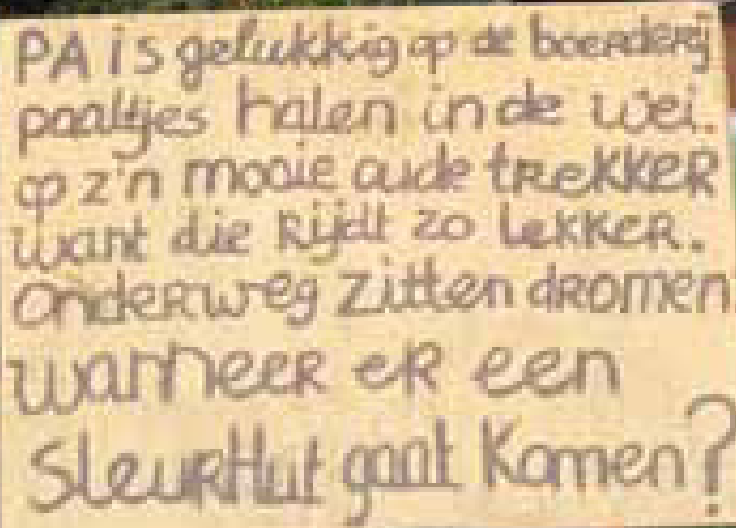 PA is gelukkig op de boerderij
paaltjes halen in de wei.
op z'n mooie oude trekker
want die rijdt zo lekker.
onderweg zitten dromen
wanneer er een
sleurhut gaat komen?